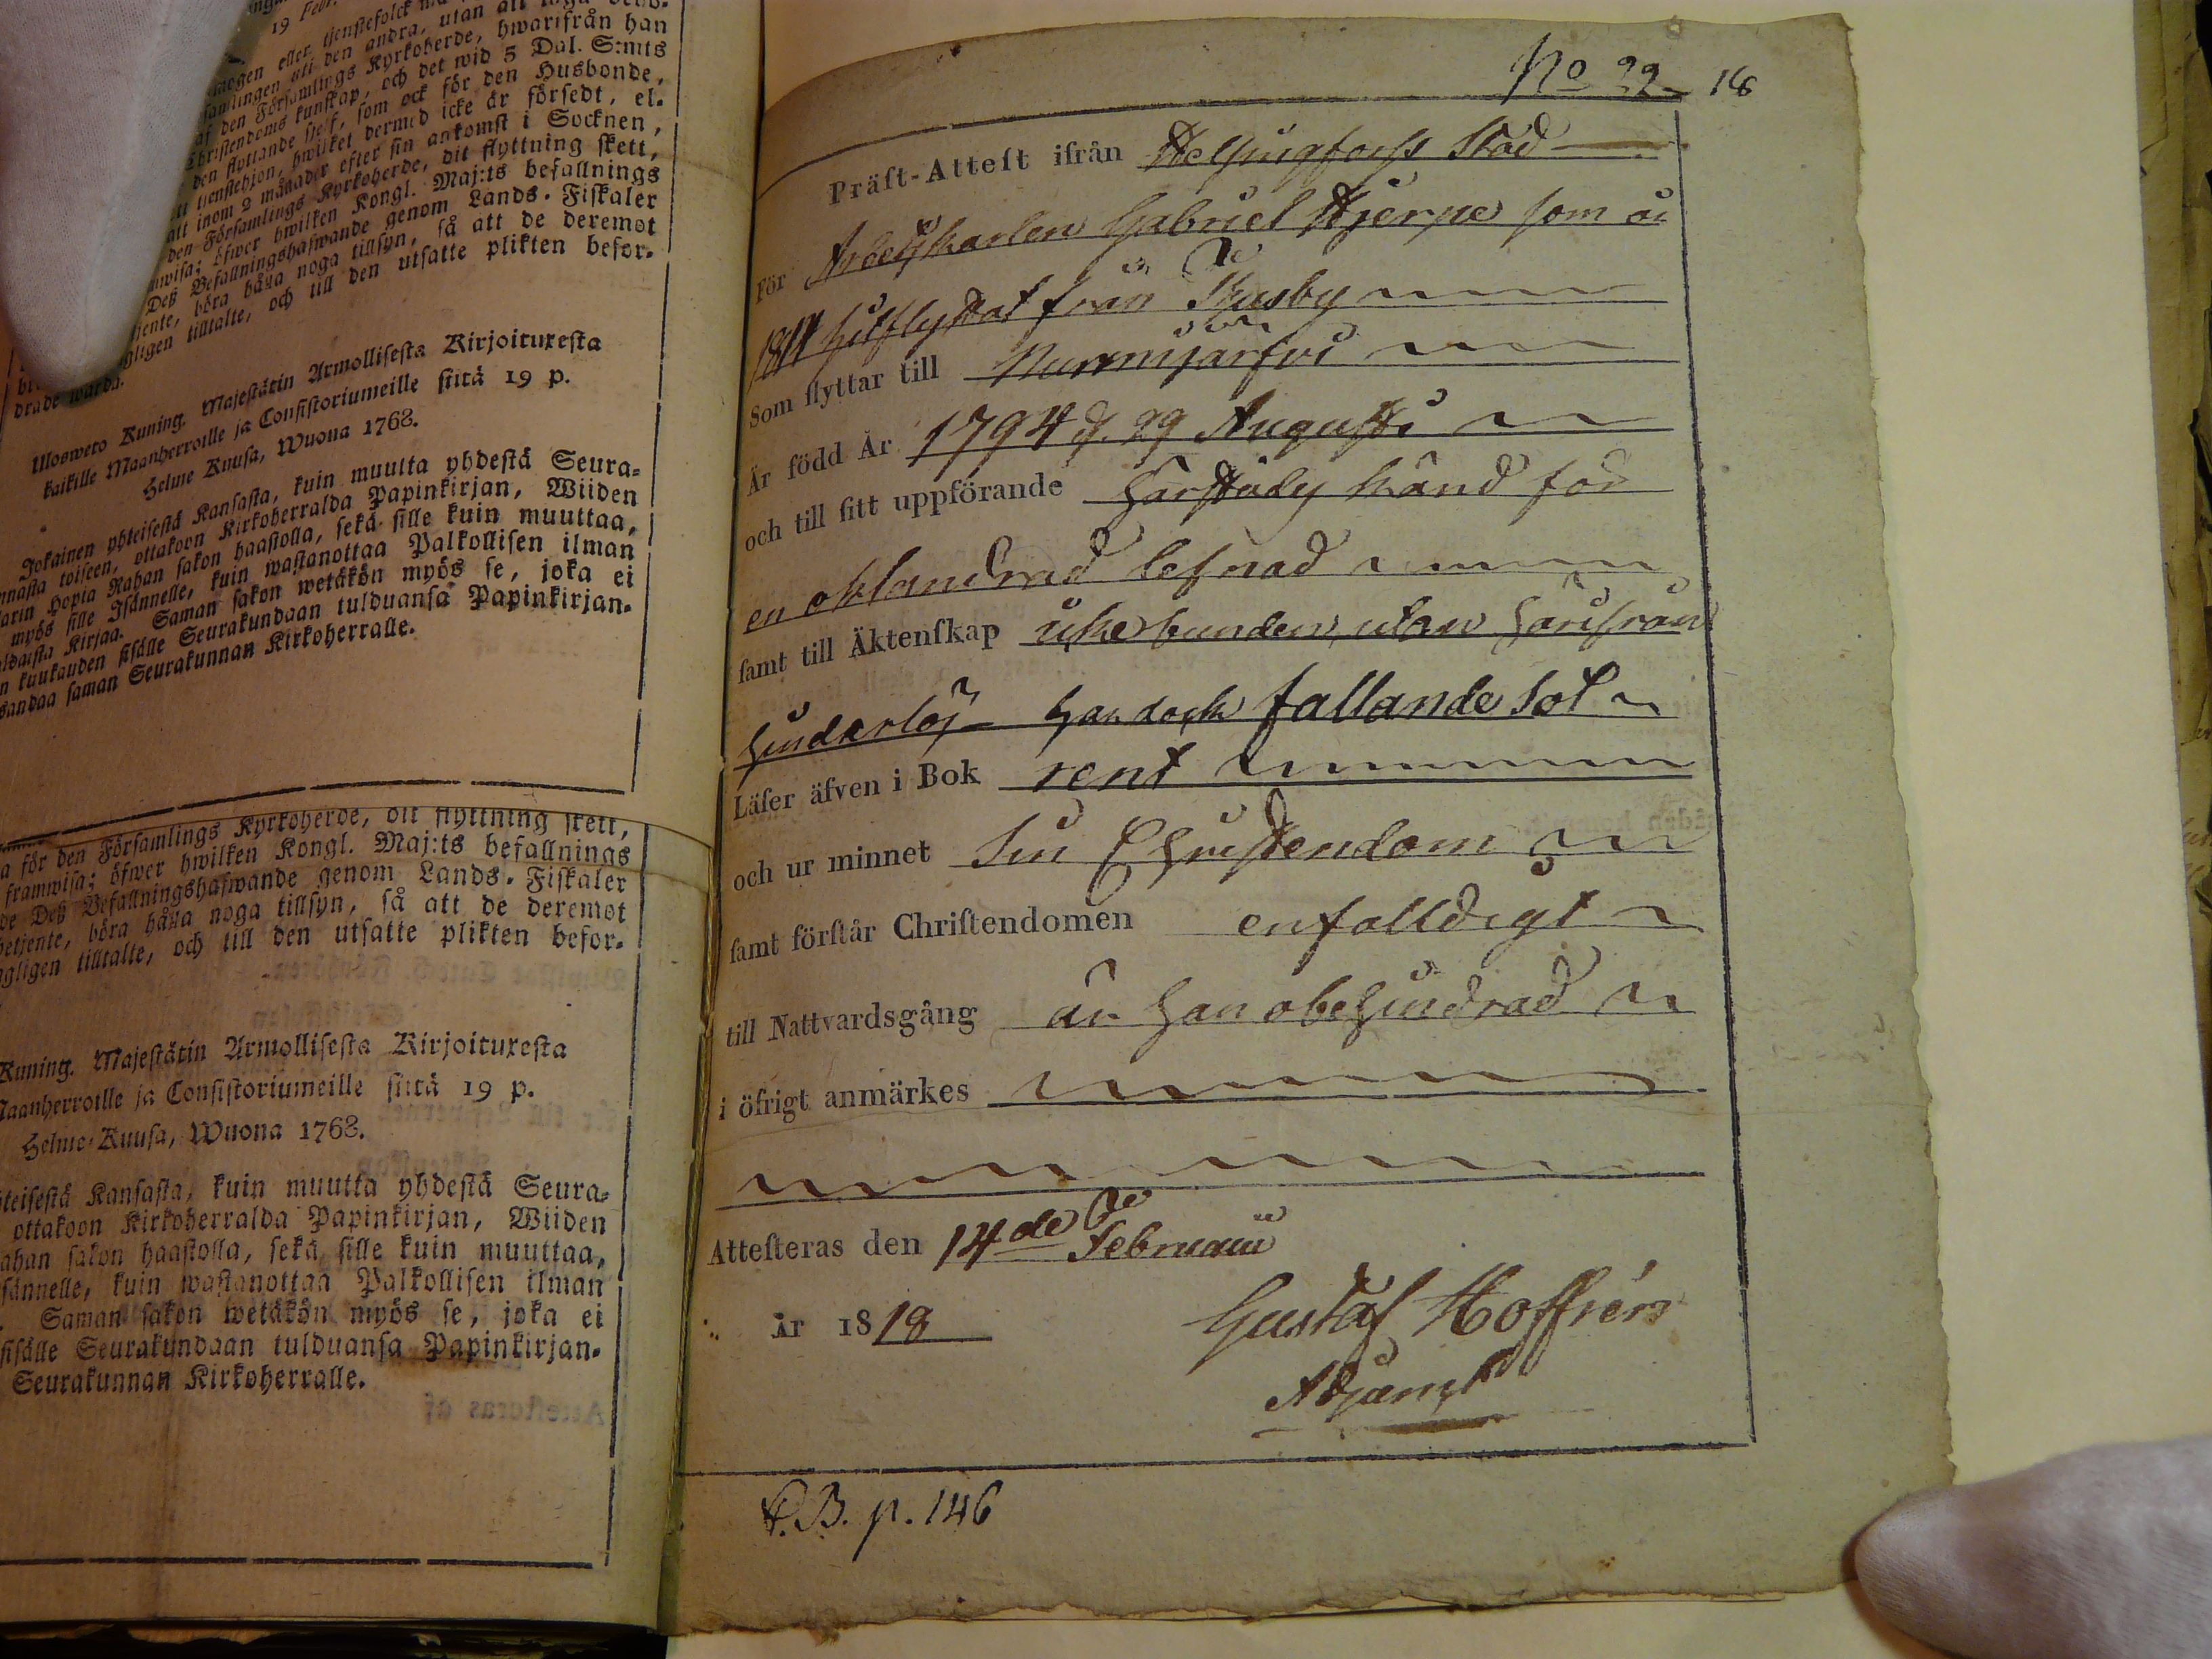 19 Febr.
mogen eller tjenstefolck
samlingen uti den andra, utan att
af den Församlings Kyrkoherde, hwarifrån han
Christendoms kunskap, och det wid 5 Dal. S:mts
den flyttande sjelf, som ock för den Husbonde,
tt tjenstehjon, hwilket dermed icke är försedt, el-
att inom 2 månader efter sin ankomst i Socknen,
den Församlings Kyrkoherde, dit flyttning skett,
mwisa; öfwer hwilken Kongl. Maj:ts befallnings
Deß Befallningshafwande genom Lands-Fiskaler
jente, böra hålla noga tillsyn, så att de deremot
gligen tilltalte, och till den utsatte plikten befor-
drade warda.
Ulosweto Kuning. Majestätin Armollisesta Kirjoituxesta
kaikille Maanherroille ja Consistoriumeille siitä 19 p.
Helme Kuusa, Wuona 1768.
Jokainen yhteisestä Kansasta, kuin muutta yhdestä Seura-
nnasta toiseen, ottakoon Kirkoherralda Papinkirjan, Wiiden
larin Hopia Rahan sakon haastolla, sekä sille kuin muuttaa,
myös sille Isännelle, kuin wastanottaa Palkollisen ilman
ldaista Kirjaa. Saman sakon wetäkön myös se, joka ei
n kuukauden sisälle Seurakundaan tulduansa Papinkirjan-
sandaa saman Seurakunnan Kirkoherralle.
a för den Församlings Kyrkoherde, dit flyttning skett,
framwisa; öfwer hwilken Kongl. Maj:ts befallnings
de Deß Befallningshafwande genom Lands-Fiskaler
betjente, böra hålla noga tillsyn, så att de deremot
ngligen tilltalte, och till den utsatte plikten befor-
Kuning. Majestätin Armollisesta Kirjoituxesta
Maanherroille ja Consistoriumeille siitä 19 p.
Helme-Kuusa, Wuona 1768.
hteisestä Kansasta, kuin muutta yhdestä Seura-
ottakoon Kirkoherralda Papinkirjan, Wiiden
ahan sakon haastolla, sekä sille kuin muuttaa,
sännelle, kuin wastanottaa Palkollisen ilman
Saman sakon wetäkön myös se, joka ei
sisälle Seurakundaan tulduansa Papinkirjan-
Seurakunnan Kirkoherralle.
No 22 16
Präst-Attest ifrån Helsingforss Stad
För Arbetskarlen Gabriel Hjerpe som år
1814 hitflyttat från Thusby
Som flyttar till Nurmijärfvi
Är född År 1794 d. 29 Augusti
och till sitt uppförande härstädes känd för
en oklandrad lefnad
samt till Äktenskap icke bunden, utan härifrån
hinderlös har dock fallande sot
Läser äfven i Bok rent
och ur minnet Sin Christendom
samt förstår Christendomen enfalldigt
till Nattvardsgång är han obehindrad
i öfrigt anmärkes
Attesteras den 14de Februarii
År 1818 Gustaf Hoffrén
Adjunct
H.B. p. 146